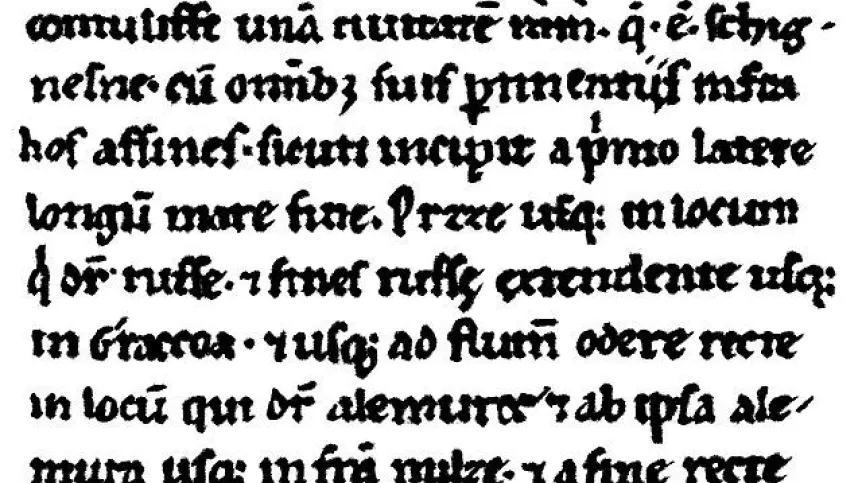 contulisse unā ciuitatē inın̄. q̄. ē. schig-
nesne. cū om̄ib; suis ꝑtinentiis infra
hos affines. sicuti incipit a pͥmo latere
longū mare fine. Przze usq; in locum
qͥ dr̄. russe. ⁊ fines russę extendente usq;
in Graccoa. ⁊ usq; ad flum̄ odere recte
in locū qui dr̄ alemurœ ⁊ ab ipsa ale-
mura usq; in frā milze. ⁊ a fine recte